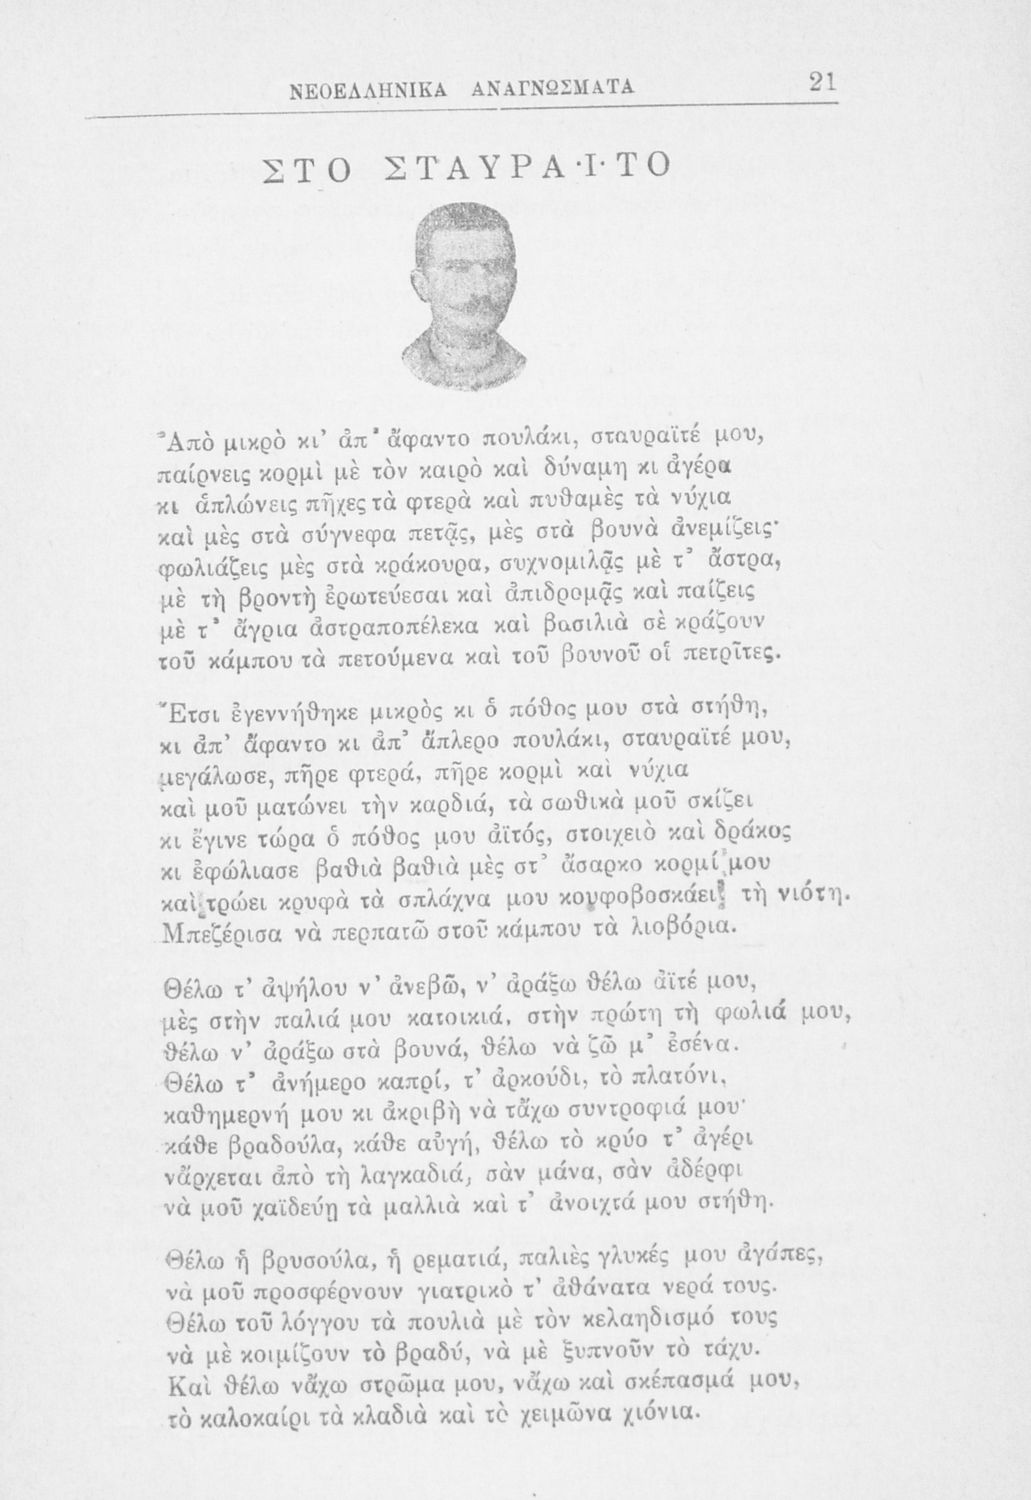 ΝΕΟΕΛΛΗΝΙΚΑ ΑΝΑΓΝΩΣΜΑΤΑ 21
ΣΤΟ ΣΤΑΥΡΑ·Ι·ΤΟ
Ἀπὸ μικρὸ κι’ ἀπ’ ἄφαντο πουλάκι, σταυραϊτέ μου,
παίρνεις κορμὶ μὲ τὸν καιρὸ καὶ δύναμη κι ἀγέρα
κι ἁπλώνεις πῆχες τὰ φτερὰ καὶ πυθαμὲς τὰ νύχια
καὶ μὲς στὰ σύγνεφα πετᾷς, μὲς στὰ βουνὰ ἀνεμίζεις·
φωλιάζεις μὲς στὰ κράκουρα, συχνομιλᾷς μὲ τ’ ἄστρα,
μὲ τὴ βροντὴ ἐρωτεύεσαι καὶ ἀπιδρομᾷς καὶ παίζεις
μὲ τ’ ἄγρια ἀστραποπέλεκα καὶ βασιλιὰ σὲ κράζουν
τοῦ κάμπου τὰ πετούμενα καὶ τοῦ βουνοῦ οἱ πετρῖτες.
Ἔτσι ἐγεννήθηκε μικρὸς κι ὁ πόθος μου στὰ στήθη,
κι ἀπ’ ἄφαντο κι ἀπ’ ἄπλερο πουλάκι, σταυραϊτέ μου,
μεγάλωσε, πῆρε φτερά, πῆρε κορμὶ καὶ νύχια
καὶ μοῦ ματώνει τὴν καρδιά, τὰ σωθικὰ μοῦ σκίζει
κι ἔγινε τώρα ὁ πόθος μου ἀϊτός, στοιχειὸ καὶ δράκος
κι ἐφώλιασε βαθιὰ βαθιὰ μὲς στ’ ἄσαρκο κορμί μου
καὶ τρώει κρυφὰ τὰ σπλάχνα μου κουφοβοσκάει τὴ νιότη.
Μπεζέρισα νὰ περπατῶ στοῦ κάμπου τὰ λιοβόρια.
Θέλω τ’ ἀψήλου ν’ ἀνεβῶ, ν’ ἀράξω θέλω ἀϊτέ μου,
μὲς στὴν παλιά μου κατοικιά, στὴν πρώτη τὴ φωλιά μου,
θέλω ν’ ἀράξω στὰ βουνά, θέλω νὰ ζῶ μ’ ἐσένα.
Θέλω τ’ ἀνήμερο καπρί, τ’ ἀρκούδι, τὸ πλατόνι,
καθημερνή μου κι ἀκριβὴ νὰ τἄχω συντροφιά μου·
κάθε βραδούλα, κάθε αὐγή, θέλω τὸ κρύο τ’ ἀγέρι
νἄρχεται ἀπὸ τὴ λαγκαδιά, σὰν μάνα, σὰν ἀδέρφι
νὰ μοῦ χαϊδεύῃ τὰ μαλλιὰ καὶ τ’ ἀνοιχτά μου στήθη.
Θέλω ἡ βρυσούλα, ἡ ρεματιά, παλιὲς γλυκές μου ἀγάπες,
νὰ μοῦ προσφέρνουν γιατρικὸ τ’ ἀθάνατα νερά τους.
Θέλω τοῦ λόγγου τὰ πουλιὰ μὲ τὸν κελαηδισμό τους
νὰ μὲ κοιμίζουν τὸ βραδύ, νὰ μὲ ξυπνοῦν τὸ τάχυ.
Καὶ θέλω νἄχω στρῶμα μου, νἄχω καὶ σκέπασμά μου,
τὸ καλοκαίρι τὰ κλαδιὰ καὶ τὸ χειμῶνα χιόνια.